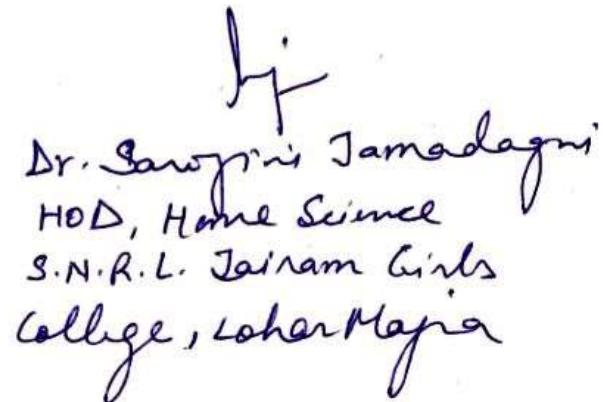 Dr. Sarojini Jamadagni
HOD, Home Science
S.N.R.L. Jairam Girls
College, Lohar Majra